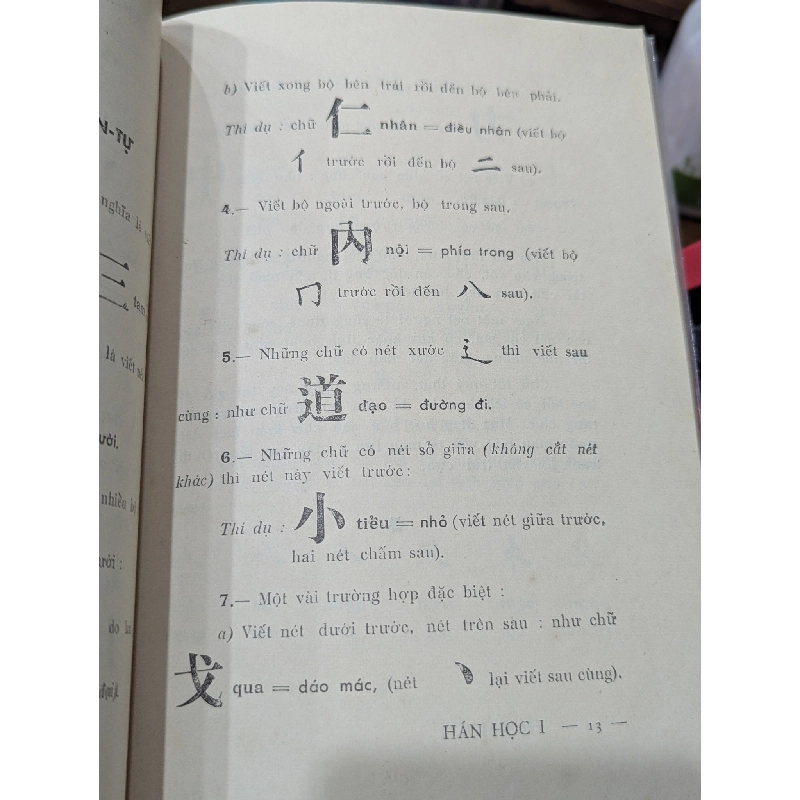 N-TỰ
nghĩa là
三 tam
là viết
ười.
nhiều bộ
ưới :
do
đại).
b) Viết xong bộ bên trái rồi đến bộ bên phải.
Thí dụ : chữ 仁 nhân = điều nhân (viết bộ
亻 trước rồi đến bộ 二 sau).
4.— Viết bộ ngoài trước, bộ trong sau.
Thí dụ : chữ 內 nội = phía trong (viết bộ
冂 trước rồi đến 八 sau).
5.— Những chữ có nét xước 辶 thì viết sau
cùng : như chữ 道 đạo = đường đi.
6.— Những chữ có nét sổ giữa (không cắt nét
khác) thì nét này viết trước :
Thí dụ : 小 tiểu = nhỏ (viết nét giữa trước,
hai nét chấm sau).
7.— Một vài trường hợp đặc biệt :
a) Viết nét dưới trước, nét trên sau : như chữ
戈 qua = dáo mác, (nét 丶 lại viết sau cùng).
HÁN HỌC I — 13 —